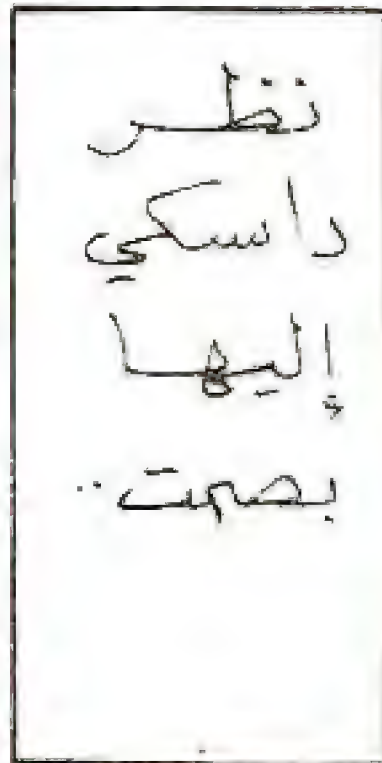 نظر
داسكي
إليها
بصمت..